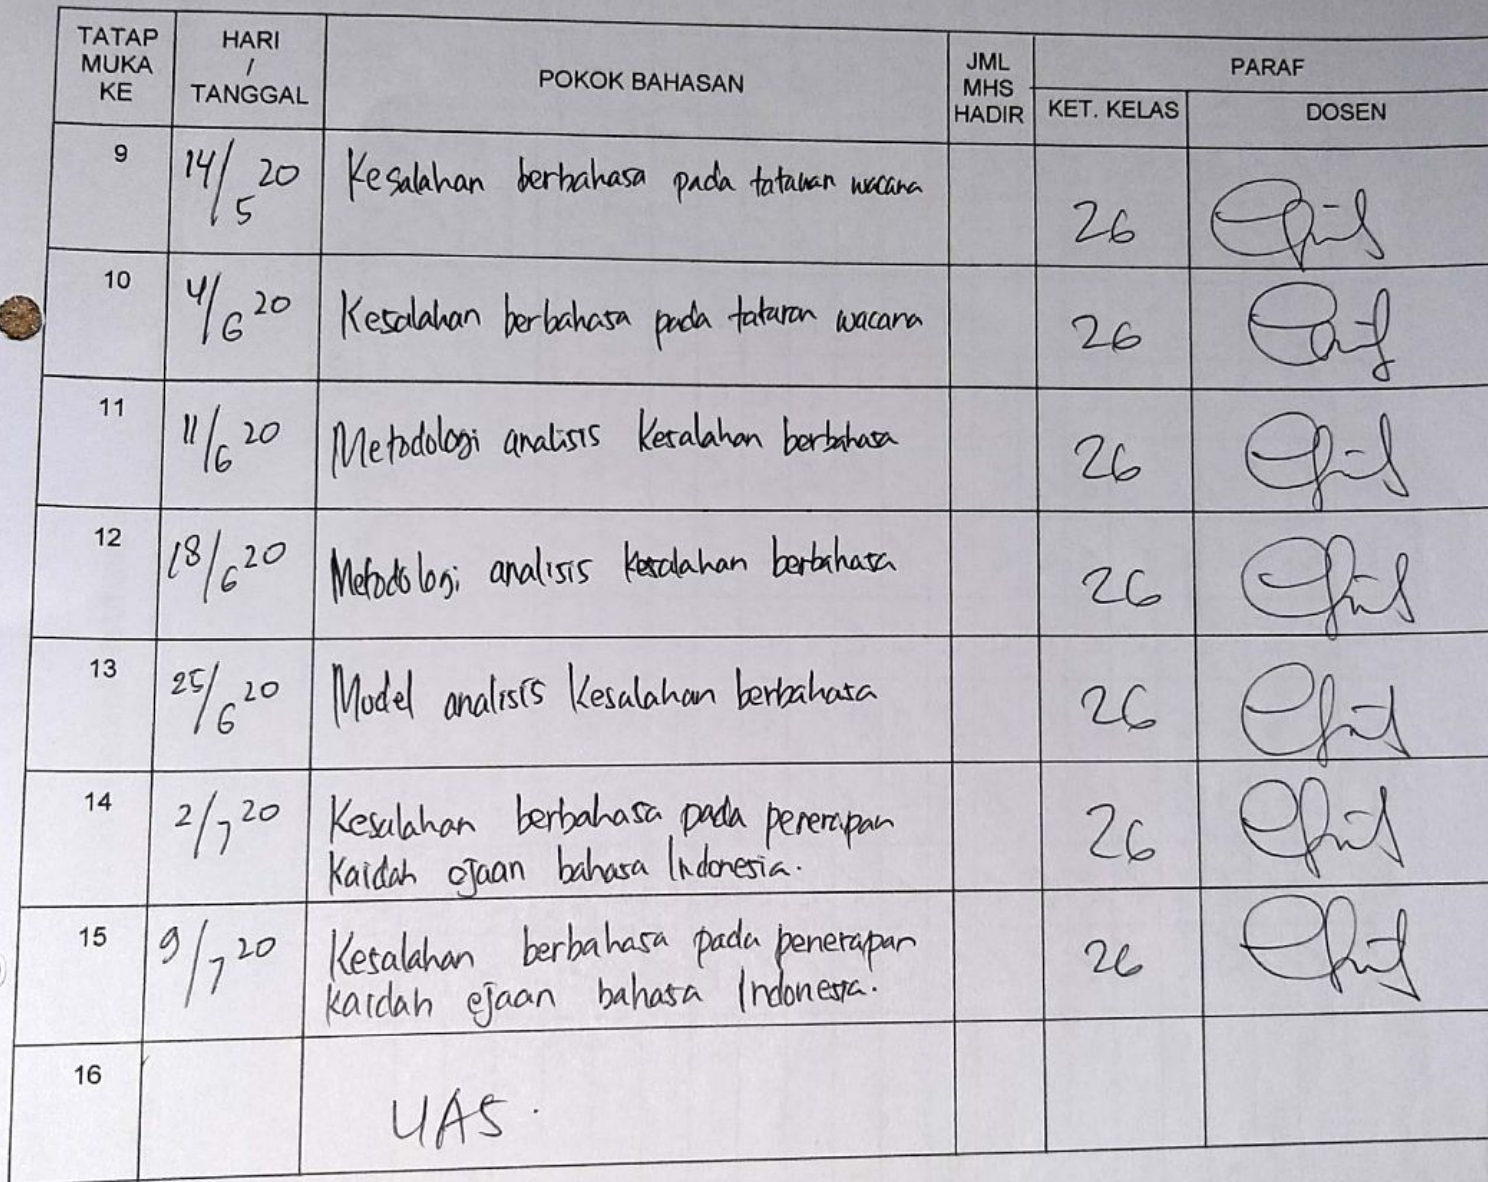 TATAP MUKA KE
HARI / TANGGAL
POKOK BAHASAN
JML MHS HADIR
PARAF
KET. KELAS
DOSEN
9 14/5 20 Kesalahan berbahasa pada tataran wacana 26
10 4/6 20 Kesalahan berbahasa pada tataran wacana 26
11 11/6 20 Metodologi analisis kesalahan berbahasa 26
12 18/6 20 Metodologi analisis kesalahan berbahasa 26
13 25/6 20 Model analisis kesalahan berbahasa 26
14 2/7 20 Kesalahan berbahasa pada penerapan 26
kaidah ejaan bahasa Indonesia.
15 9/7 20 Kesalahan berbahasa pada penerapan 26
kaidah ejaan bahasa Indonesia.
16 UAS.